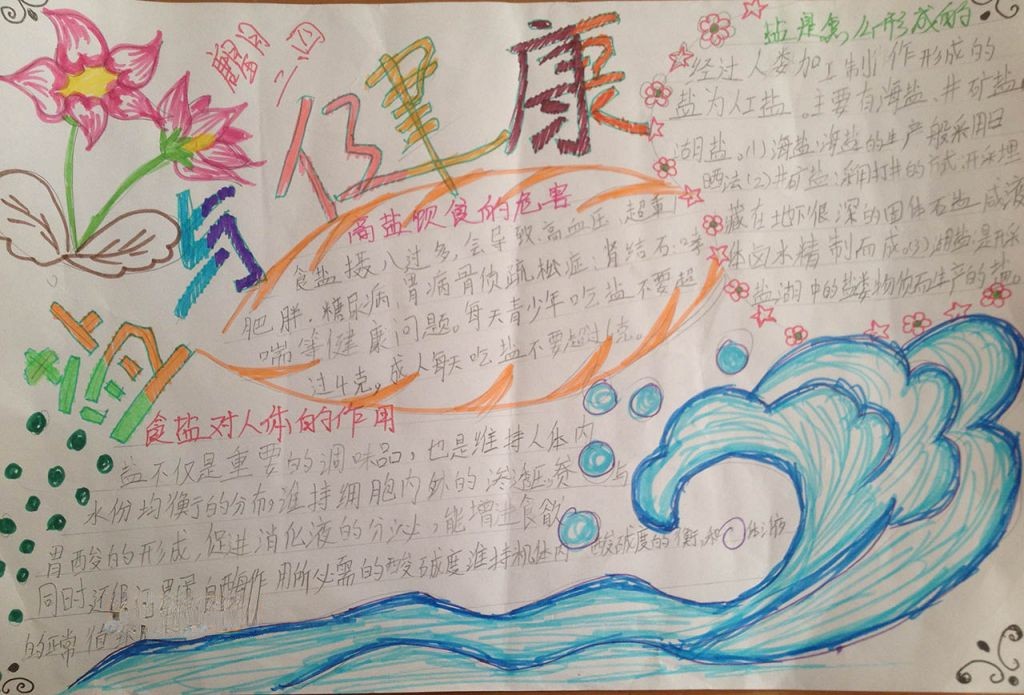 盐与健康
二四
盐是怎么形成的
经过人类加工制作形成的
盐为人工盐。主要有海盐、井矿盐、
湖盐。(1)海盐:海盐的生产般采用日
晒法(2)井矿盐:采用打井的方式,开采埋
藏在地下很深的固体石盐或液
体卤水精制而成。(3)湖盐:是开采
盐湖中的盐类物质而生产的盐。
高盐饮食的危害
食盐摄入过多,会导致高血压 超重/
肥胖、糖尿病、胃病骨质疏松症、肾结石、哮
喘等健康问题。每天青少年吃盐不要超
过4克。成人每天吃盐不要超过6克。
食盐对人体的作用
盐不仅是重要的调味品,也是维持人体内
水份均衡的分布,维持细胞内外的渗透压,参与
胃酸的形成,促进消化液的分泌,能增进食欲
同时还保证胃蛋白酶作用所必需的酸碱度维持机体内酸碱度的衡和体液
的正常循环